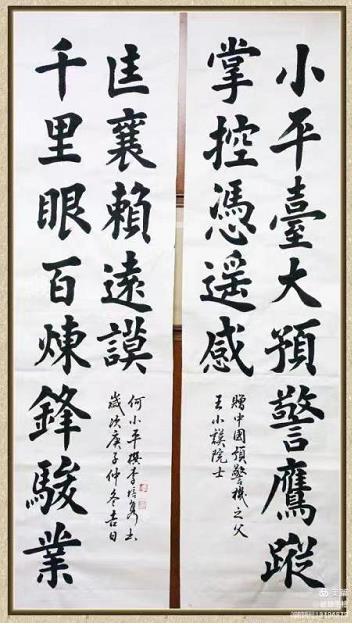 小平臺大預警鷹蹤
掌控憑遥感
贈中國預警機之父
王小謨院士
千里眼百煉鋒駿業
匡襄賴遠謨
何小平撰李培书
歲次庚子仲冬吉日
美篇